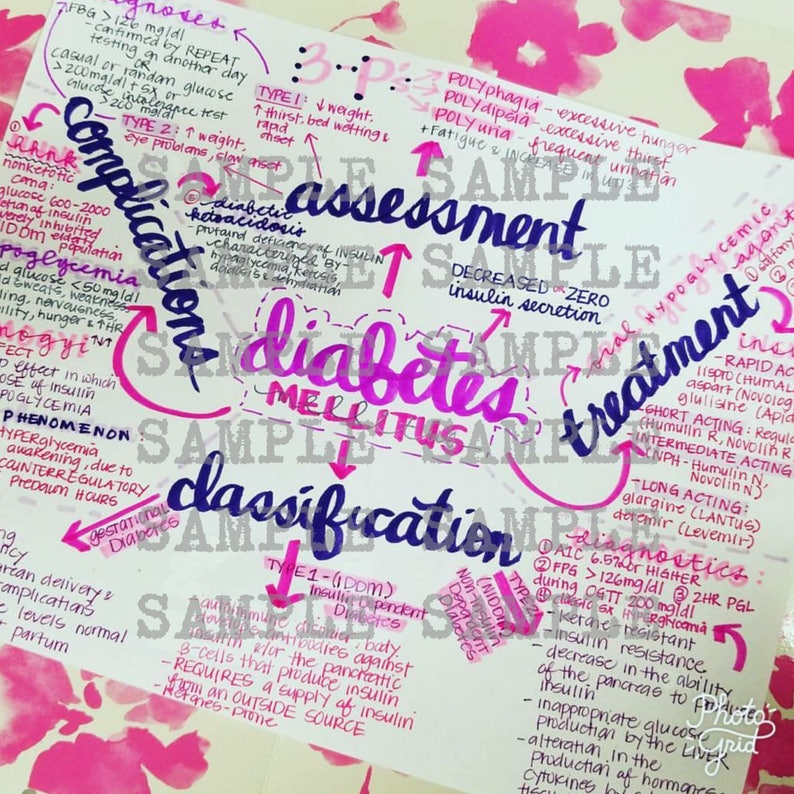 diagnoses
FBG > 126 mg/dl
- confirmed by REPEAT
testing on another day
OR
casual or random glucose
> 200 mg/dl + SX or
glucose intolerance test
> 200 mg/dl
3-P's
POLYphagia - excessive hunger
POLYdipsia - excessive thirst
POLYuria - frequent urination
+ fatigue & INCREASE IN UTI
TYPE 1: ↓ weight,
↑ thirst, bed wetting &
rapid
onset
TYPE 2: ↑ weight,
eye problems, slow onset
complications
①
HHNK
nonketotic
coma:
glucose 600-2000
insulin
inhibited
elderly
population
hypoglycemia
glucose < 50 mg/dl
sweats, weakness,
nervousness,
hunger & ↑HR
effect in which
of insulin
PHENOMENON:
HYPERglycemia
awakening, due to
COUNTERREGULATORY
Predawn HOURS
⑤ - diabetic
ketoacidosis
- profound deficiency of INSULIN
characterized by
hypoglycemia, ketosis,
acidosis & dehydration
assessment
DECREASED or ZERO
insulin secretion
diabetes
MELLITUS
treatment
oral HYPOGLYCEMIC
agent
①
②
- RAPID
lispro
aspart
glulisine
- SHORT ACTING:
(Humulin R, Novolin R
INTERMEDIATE ACTING
(NPH - Humulin N,
Novolin N)
- LONG ACTING:
glargine (LANTUS)
detemir (Levemir)
classification
gestational
Diabetes
delivery &
complications
levels normal
partum
TYPE 1 - (IDDM)
Insulin Dependent
Diabetes
autoimmune disorder, body
develops antibodies against
insulin &/or the pancreatic
B-cells that produce insulin
- REQUIRES a supply of insulin
from an OUTSIDE SOURCE
- Ketones-prone
TYPE 2
(NIDDM)
Non-Insulin
Dependent
Diabetes
diagnostics:
① A1C 6.5% or HIGHER
② FPG > 126mg/dl ③ 2HR PGL
during OGTT 200 mg/dl
④ classic sx hyperglycemia
- ketone resistant
- insulin resistance
- decrease in the ability
of the pancreas to produce
insulin
- inappropriate glucose
production by the LIVER
- alteration in the
production of hormones &
cytokines by
SAMPLE SAMPLE SAMPLE
SAMPLE SAMPLE SAMPLE SAMPLE
SAMPLE SAMPLE SAMPLE SAMPLE
SAMPLE SAMPLE SAMPLE SAMPLE
SAMPLE SAMPLE SAMPLE SAMPLE
SAMPLE SAMPLE SAMPLE SAMPLE
SAMPLE SAMPLE SAMPLE SAMPLE
Photo
Grid